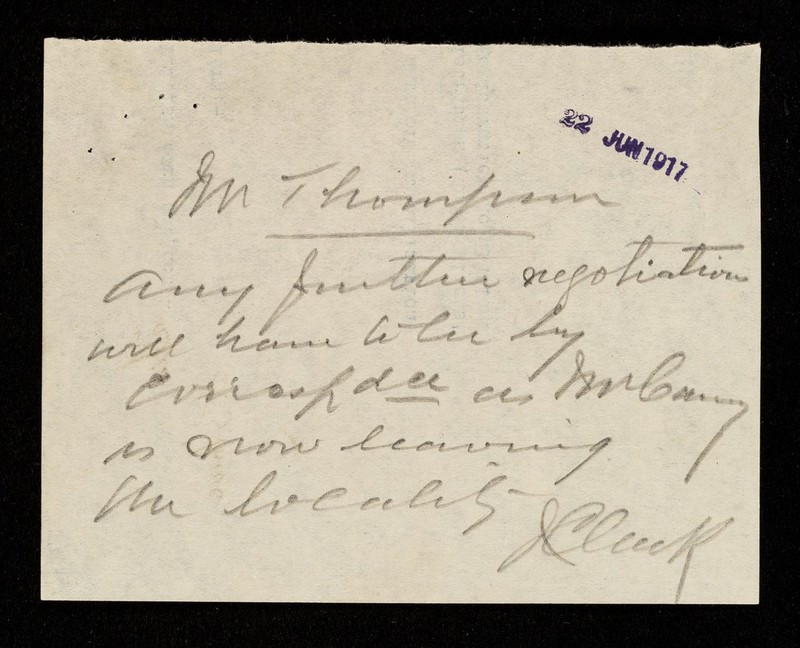 22 JUN 1917
Mr Thompson
Any further negotiation
will have to be by
Correspdce as Mr
is now leaving
the locality
J Clark